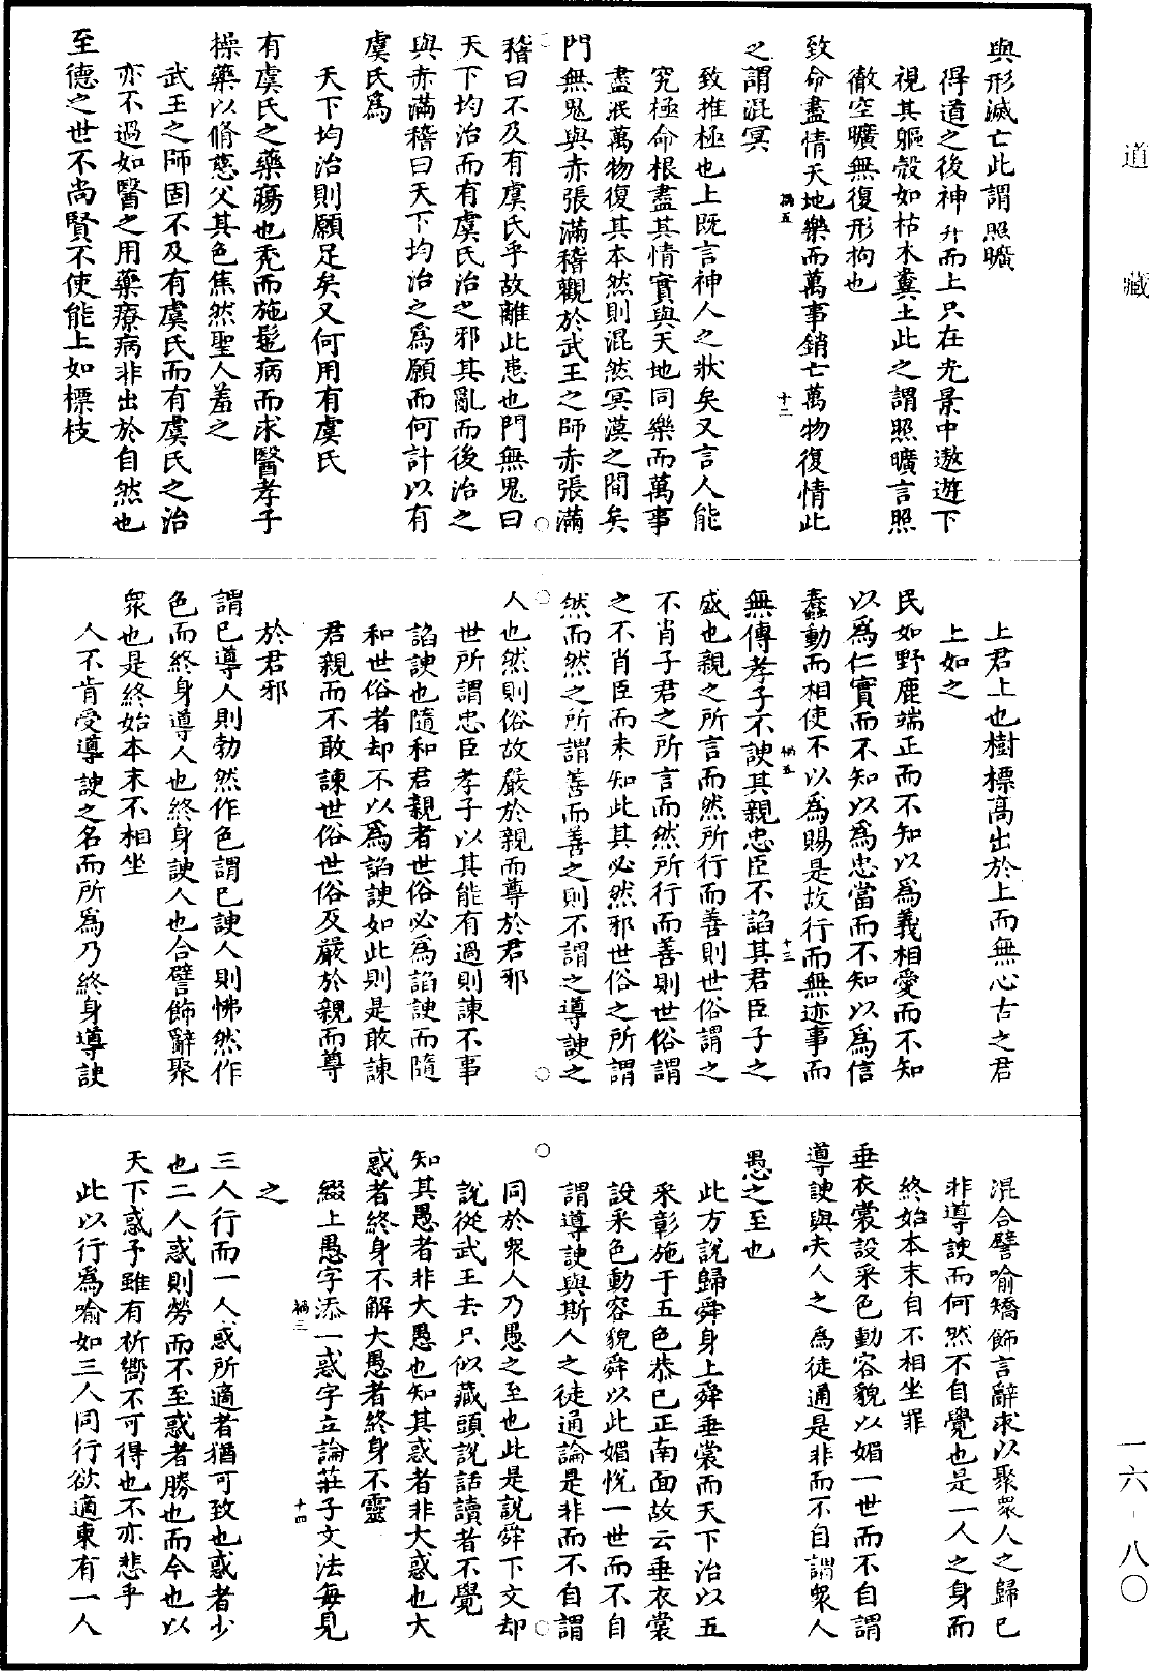 道藏
與形滅亡此謂照曠
得道之後神升而上只在光景中遨遊下
視其軀殼如枯木糞土此之謂照曠言照
徹空曠無復形拘也
致命盡情天地樂而萬事銷亡萬物復情此
之謂混冥
致推極也上既言神人之狀矣又言人能
究極命根盡其情實與天地同樂而萬事
盡泯萬物復其本然則混然冥漠之間矣
門無鬼與赤張滿稽觀於武王之師赤張滿
稽曰不及有虞氏乎故離此患也門無鬼曰
天下均治而有虞氏治之邪其亂而後治之
與赤滿稽曰天下均治之爲願而何計以有
虞氏爲
天下均治則願足矣又何用有虞氏
有虞氏之藥瘍也禿而施髢病而求醫孝子
操藥以脩慈父其色焦然聖人羞之
武王之師固不及有虞氏而有虞氏之治
亦不過如醫之用藥療病非出於自然也
至德之世不尚賢不使能上如標枝
上君上也樹標高出於上而無心古之君
上如之
民如野鹿端正而不知以爲義相愛而不知
以爲仁實而不知以爲忠當而不知以爲信
蠢動而相使不以爲賜是故行而無迹事而
無傳孝子不諛其親忠臣不諂其君臣子之
盛也親之所言而然所行而善則世俗謂之
不肖子君之所言而然所行而善則世俗謂
之不肖臣而未知此其必然邪世俗之所謂
然而然之所謂善而善之則不謂之導諛之
人也然則俗故嚴於親而尊於君邪
世所謂忠臣孝子以其能有過則諫不事
諂諛也隨和君親者世俗必爲諂諛而隨
和世俗者却不以爲諂諛如此則是敢諫
君親而不敢諫世俗世俗反嚴於親而尊
於君邪
謂已導人則勃然作色謂已諛人則怫然作
色而終身導人也終身諛人也合譬飾辭聚
眾也是終始本末不相坐
人不肯受導諛之名而所爲乃終身導諛
混合譬喻矯飾言辭求以聚眾人之歸已
非導諛而何然不自覺也是一人之身而
終始本末自不相坐罪
垂衣裳設采色動容貌以媚一世而不自謂
導諛與夫人之爲徒通是非而不自謂衆人
愚之至也
此方說歸舜身上舜垂裳而天下治以五
采彰施于五色恭已正南面故云垂衣裳
設采色動容貌舜以此媚悅一世而不自
謂導諛與斯人之徒通論是非而不自謂
同於衆人乃愚之至也此是說舜下文却
說從武王去只似藏頭說話讀者不覺
知其愚者非大愚也知其惑者非大惑也大
惑者終身不解大愚者終身不靈
綴上愚字添一惑字立論莊子文法每見
之
三人行而一人惑所適者猶可致也惑者少
也二人惑則勞而不至惑者勝也而今也以
天下惑予雖有祈嚮不可得也不亦悲乎
此以行爲喻如三人同行欲適東有一人
一六-八〇